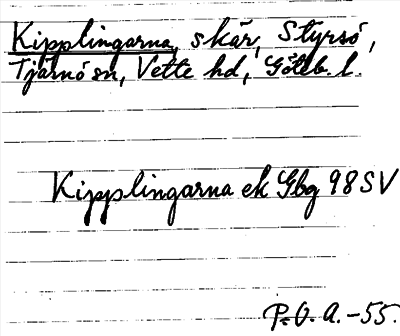 Kipplingarna, skär, Styrsö,
Tjärnö sn, Vette hd, Göteb. l.
Kipplingarna ek Gbg 98 SV
P.O.A.-55.